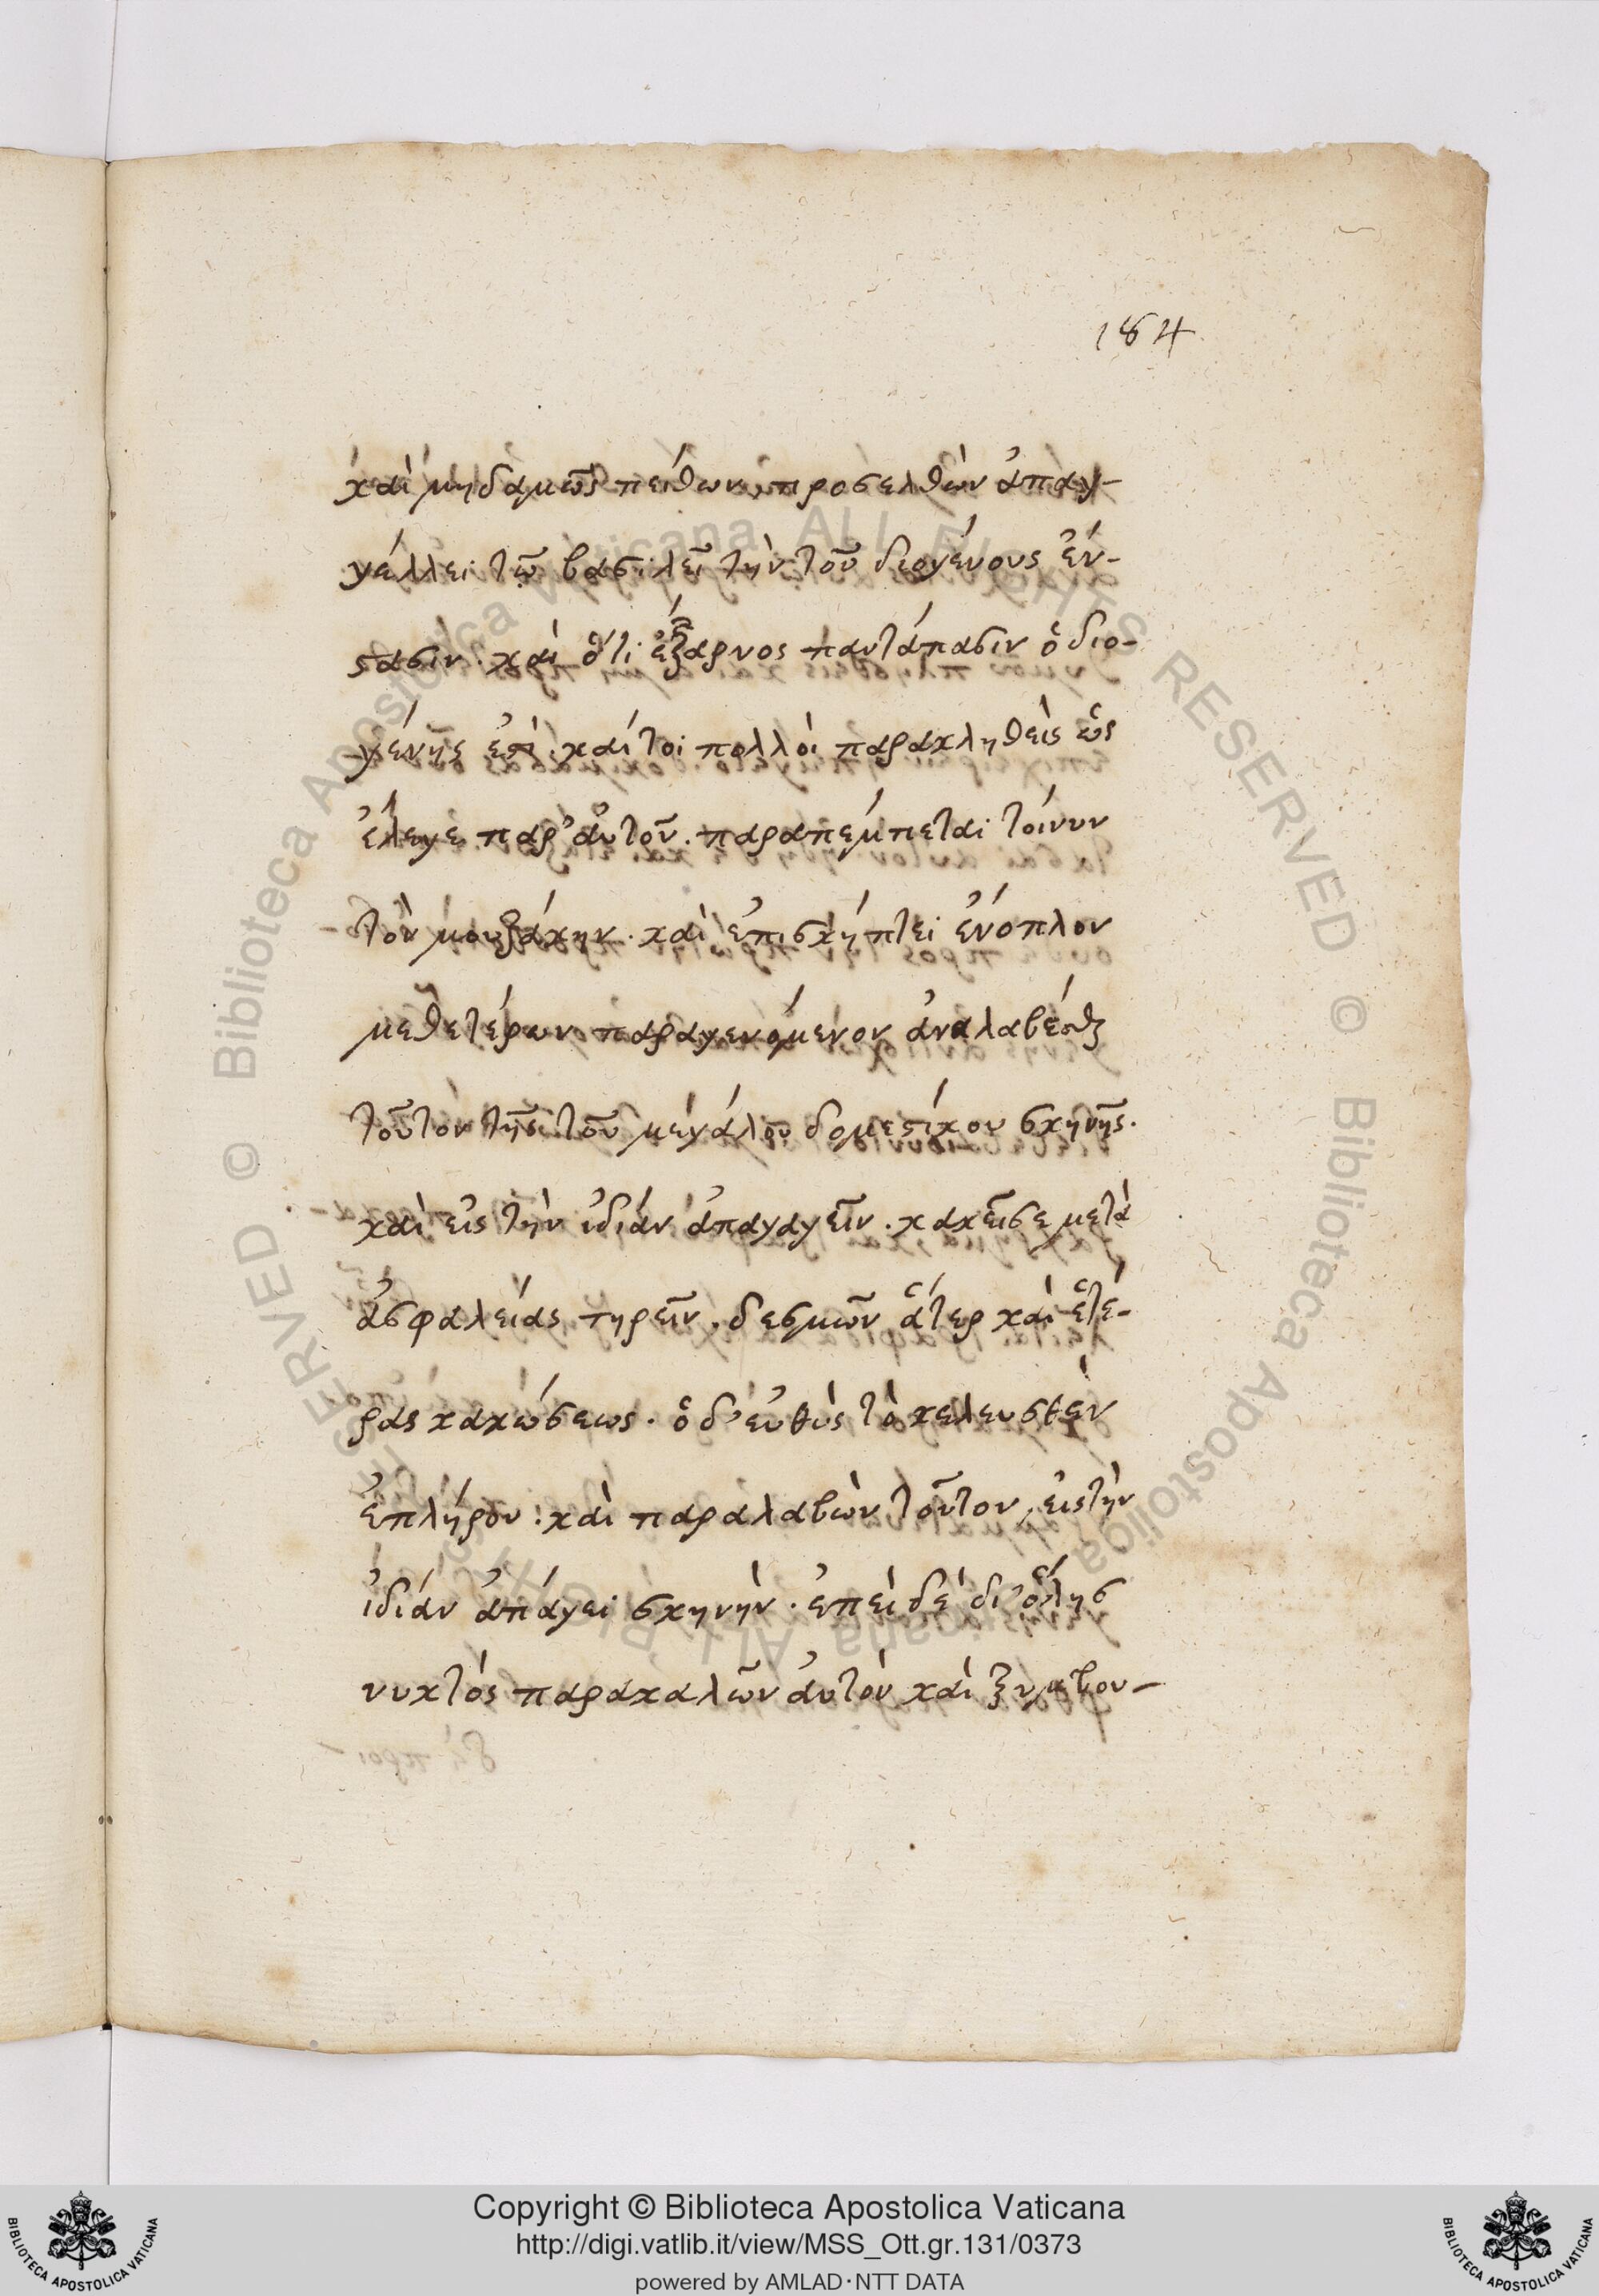 184
καὶ μηδαμῶς πείθων, προσελθὼν ἀπαγ-
γέλλει τῷ βασιλεῖ τὴν τοῦ διογένους ἔν-
στασιν. καὶ ὅτι ἔξαρνος παντάπασιν ὁ διο-
γένης ἐστὶ. καίτοι πολλὰ παρακληθεὶς ὡς
ἔλεγε παρ' αὐτοῦ. παραπέμπεται τοίνυν
τὸν μουζάκην. καὶ ἐπισκήπτει ἔνοπλον
μεθετέρων παραγενόμενον ἀναλαβέσθαι
τοῦτον τῆς τοῦ μεγάλου δομεστίκου σκηνῆς.
καὶ εἰς τὴν ἰδίαν ἀπαγαγεῖν. κἀκεῖσε μετὰ
ἀσφαλείας τηρεῖν. δεσμῶν ἅτερ καὶ ἑτέ-
ρας κακώσεως. ὁ δ' εὐθὺς τὸ κελευσθὲν
ἐπλήρου. καὶ παραλαβὼν τοῦτον, εἰς τὴν
ἰδίαν ἀπάγει σκηνὴν. ἐπεὶ δὲ δι' ὅλης
νυκτὸς παρακαλῶν αὐτὸν καὶ ξυμβου-
Copyright © Biblioteca Apostolica Vaticana
http://digi.vatlib.it/view/MSS_Ott.gr.131/0373
powered by AMLAD·NTT DATA
BIBLIOTECA APOSTOLICA VATICANA
BIBLIOTECA APOSTOLICA VATICANA